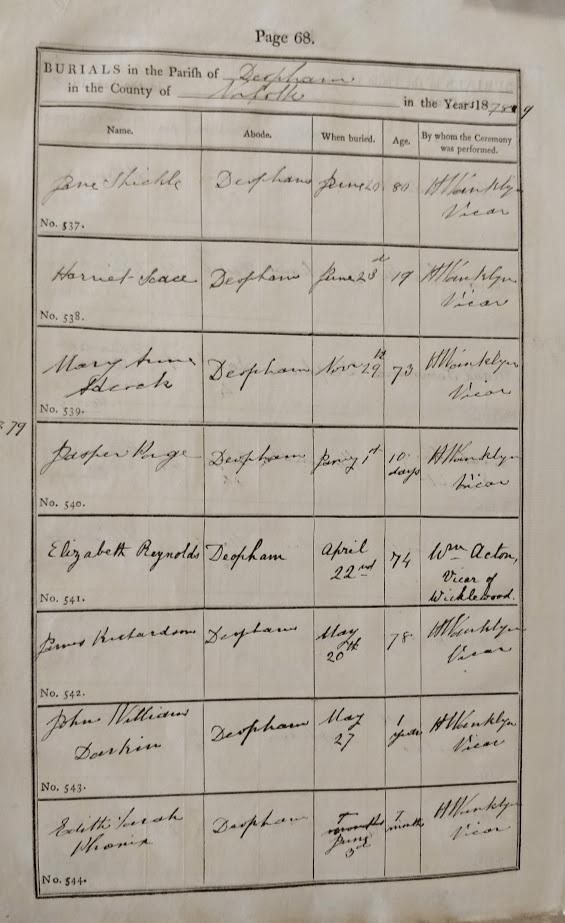 Page 68.
BURIALS in the Parish of Deopham
in the County of Norfolk in the Year 1878 9
Name. Abode. When buried. Age. By whom the Ceremony was performed.
Jane Shickle Deopham June 20 80 H Winklyn
Vicar
No. 537.
Harriet Deopham June 23d 19 H Winklyn
Vicar
No. 538.
Mary Anne
Adcock Deopham Novr 29th 73 H Winklyn
Vicar
No. 539.
79
Jasper Page Deopham Jany 1st 10 days H Winklyn
Vicar
No. 540.
Elizabeth Reynolds Deopham April
22nd 74 Wm Acton,
Vicar of
Wicklewood.
No. 541.
James Richardson Deopham May
20th 78 H Winklyn
Vicar
No. 542.
John William
Darkin Deopham May
27 1 year H Winklyn
Vicar
No. 543.
Edith Sarah
Phoenix Deopham 7 months
June
3d 7 months H Winklyn
Vicar
No. 544.